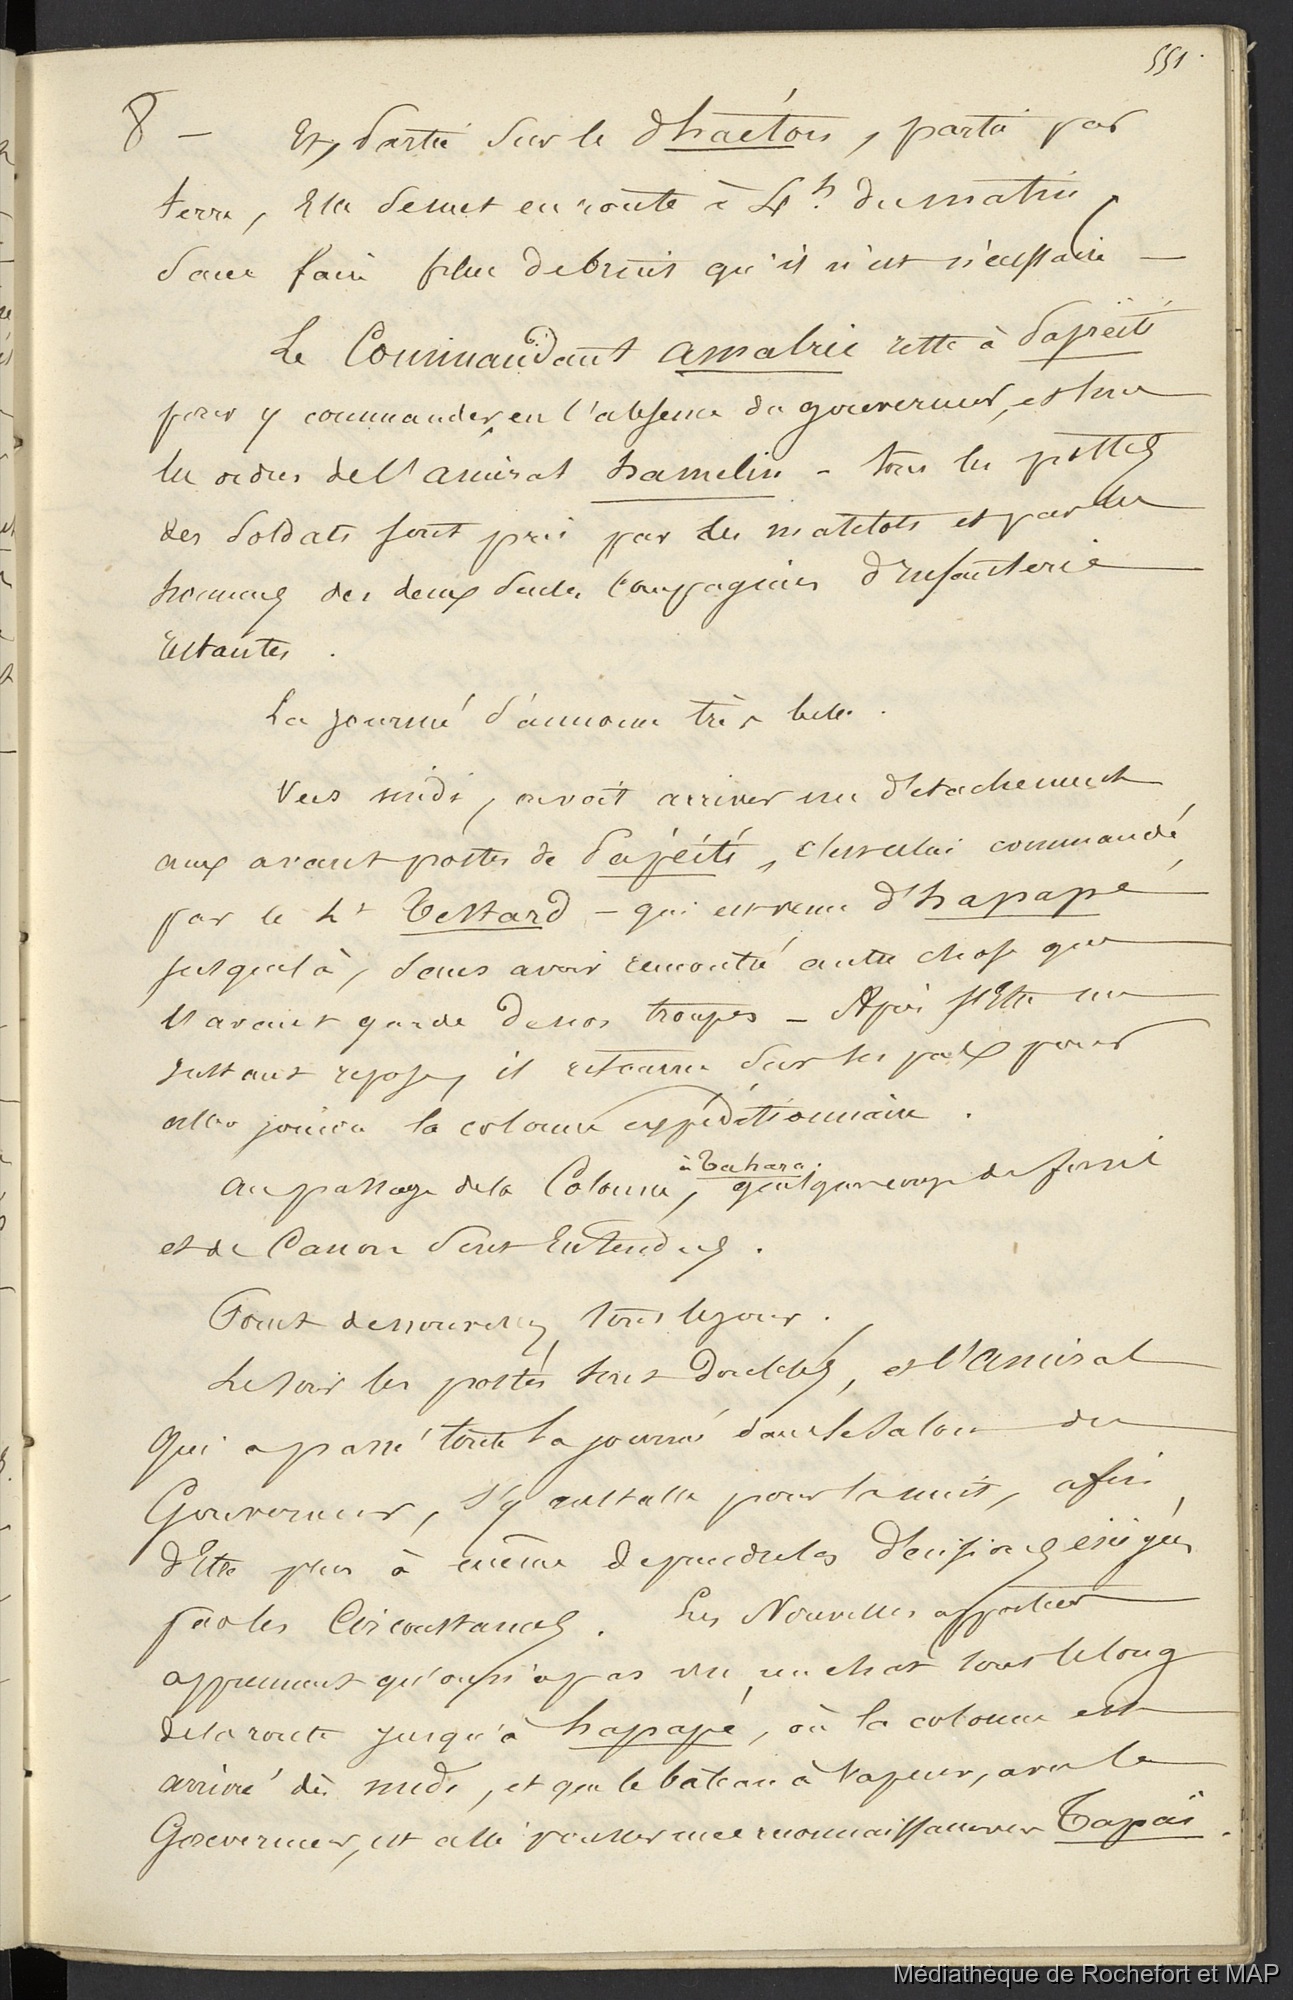 551.
8 – Et, partie sur le Phaéton, partie par
terre, Elle se met en route à 4h. du matin,
sans faire plus de bruit qu'il n'est nécessaire –
Le Commandant Amalric reste à Papéïti
pour y commander, en l'absence du gouverneur, et sous
les ordres de l'amiral hamelin – tous les postes
des Soldats sont pris par des matelots et par les
hommes des deux seules Compagnies d'Infanterie
restantes.
La journée s'annonce très belle.
Vers midi, on voit arriver un détachement
aux avant postes de Papéïti, c'est celui commandé
par le Lt Testard – qui est venu d'hapapé
jusques là, sans avoir rencontré autre chose que
l'avant garde de nos troupes – Après s'être un
instant reposé, il retourne sur ses pas pour
aller joindre la colonne expéditionnaire.
Au passage de la Colonne, à Tahara, quelques coups de fusil
et de Canon sont Entendus.
Point de nouvelles, tout le jour.
Le soir les postes sont doublés, et l'Amiral
qui a passé toute la journée dans le Salon du
Gouverneur, s'y installe pour la nuit, afin
d'être plus à même de prendre les décisions exigées
par les Circonstances. Les Nouvelles apportées
apprennent qu'on n'a pas vu un chat tout le long
de la route jusqu'à hapapé, où la colonne est
arrivée dès midi, et que le bateau à Vapeur, avec le
Gouverneur, est allé pousser une reconnaissance vers Tapaï.
Médiathèque de Rochefort et MAP